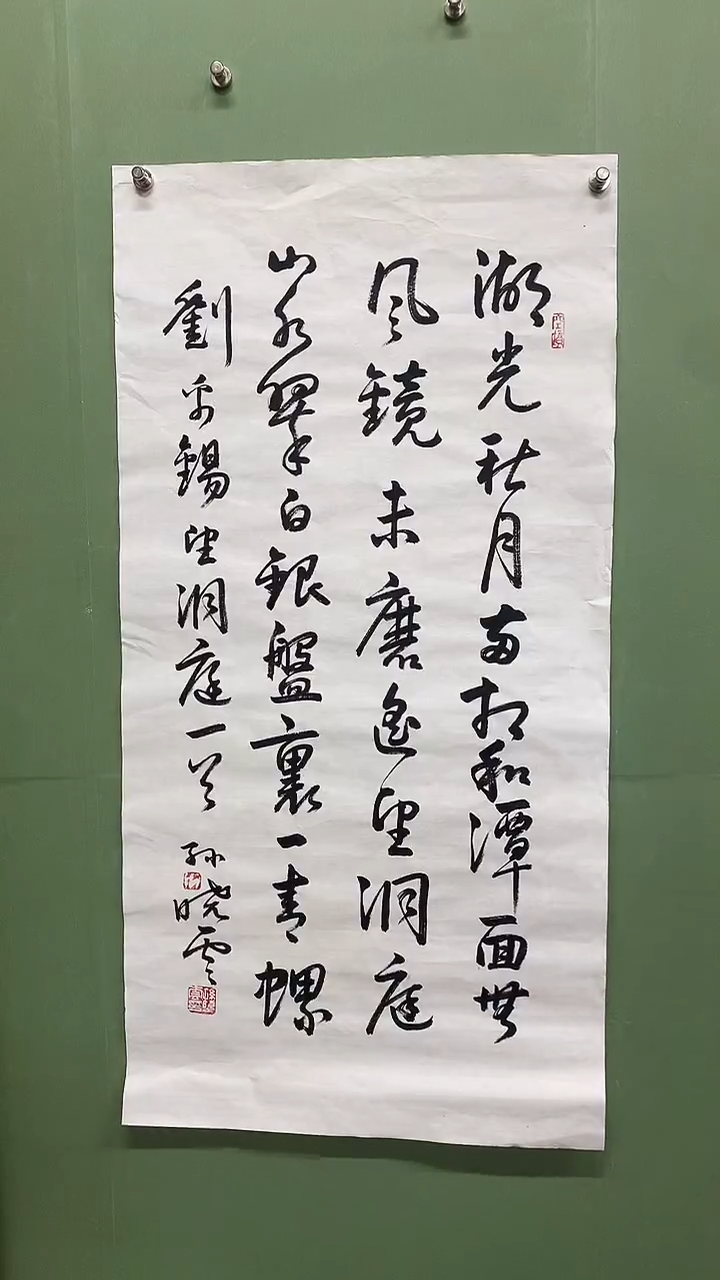 湖光秋月两相和潭面無
风鏡未磨遙望洞庭
山水翠白銀盤裏一青螺
劉禹錫望洞庭一首
孙晓雲